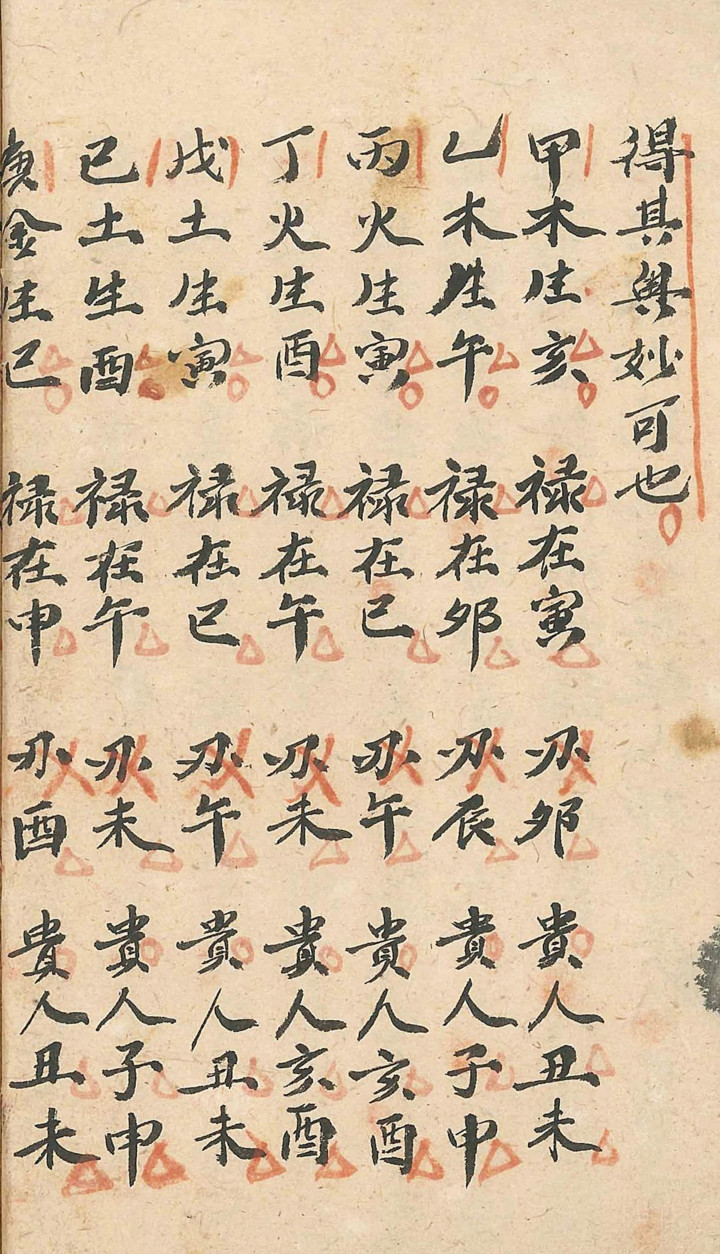 得其奥妙可也
甲木生亥 禄在寅 刃卯 貴人丑未
乙木生午 禄在卯 刃辰 貴人子申
丙火生寅 禄在巳 刃午 貴人亥酉
丁火生酉 禄在午 刃未 貴人亥酉
戊土生寅 禄在巳 刃午 貴人丑未
己土生酉 禄在午 刃未 貴人子申
庚金生巳 禄在申 刃酉 貴人丑未